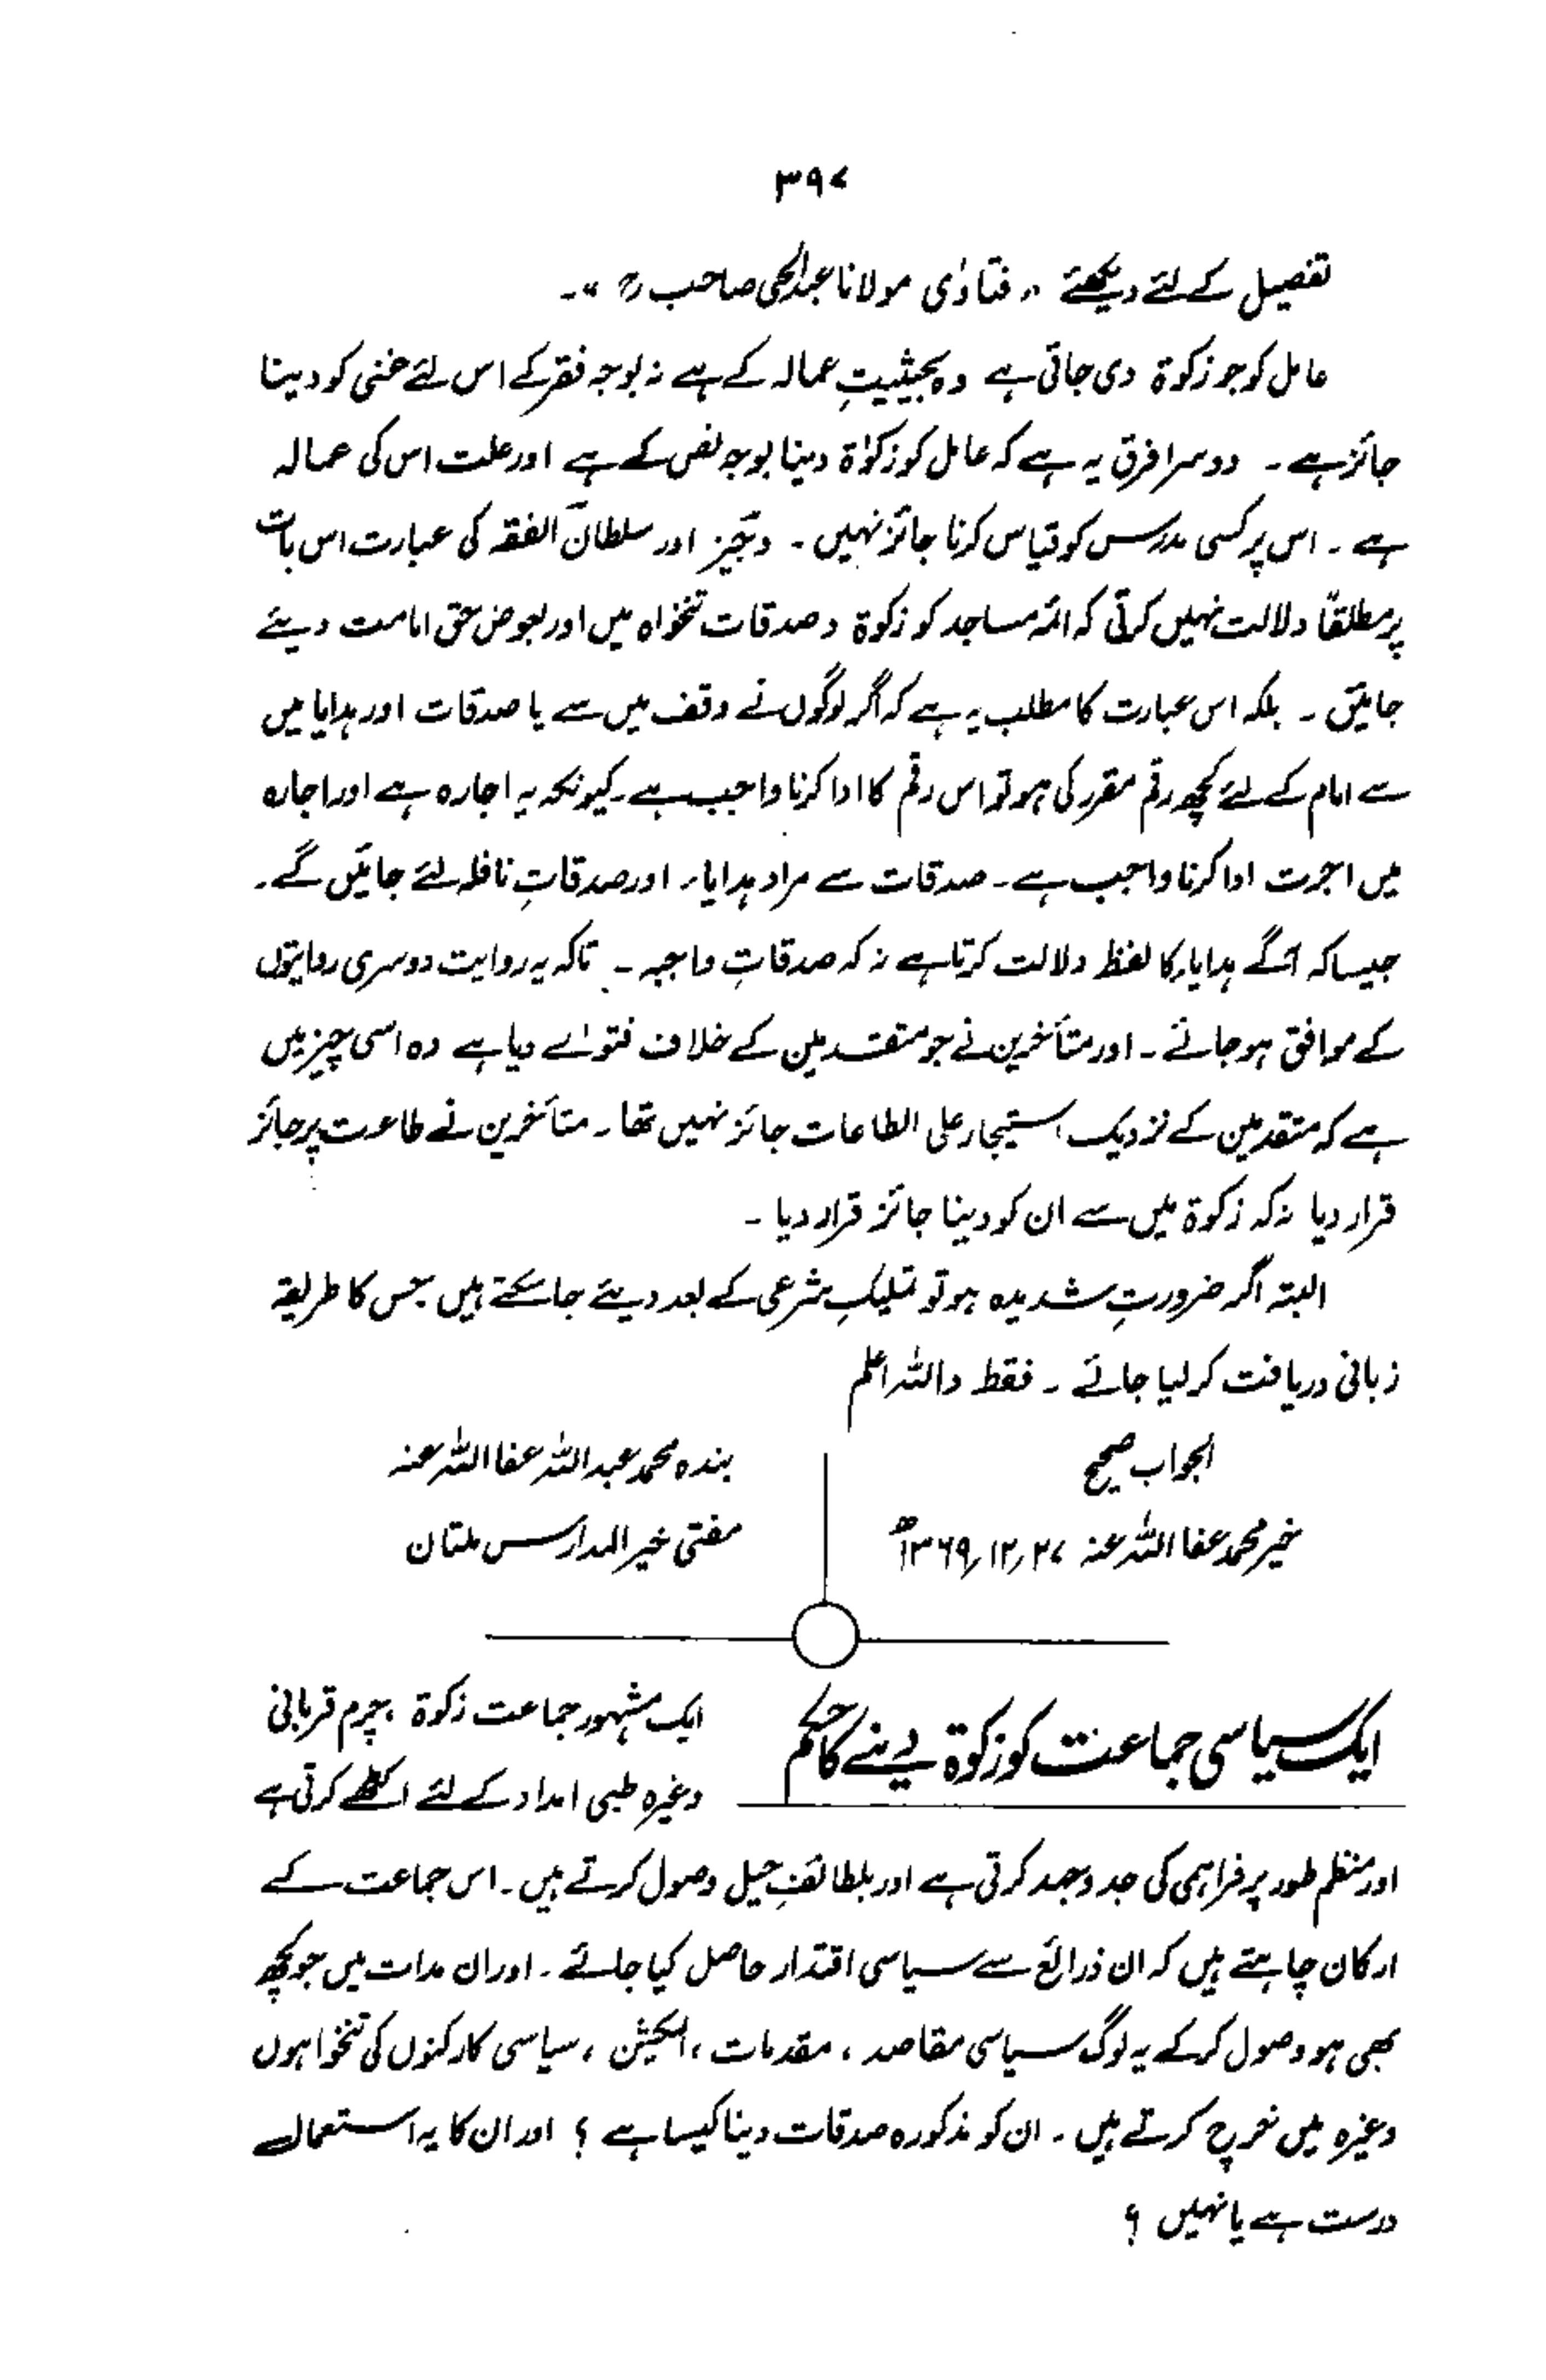 ۳۹۷
تفصیل کے لئے دیکھئے "فتاوٰی مولانا عبدالحی صاحبؒ"۔
عامل کو جو زکوٰۃ دی جاتی ہے وہ بحیثیتِ عمالہ کے ہے نہ بوجہ فقر کے اس لئے غنی کو دینا
جائز ہے ۔ دوسرا فرق یہ ہے کہ عامل کو زکوٰۃ دینا بوجہ نص کے ہے اور علت اس کی عمالہ
ہے ۔ اس پر کسی مدرس کو قیاس کرنا جائز نہیں ۔ وجیز اور سلطان الفقہ کی عبارت اس بات
پر مطلقاً دلالت نہیں کرتی کہ ائمہ مساجد کو زکوۃ و صدقات تنخواہ میں اور بعوض حق امامت دیئے
جائیں ۔ بلکہ اس عبارت کا مطلب یہ ہے کہ اگر لوگوں نے وقف میں سے یا صدقات اور ہدایا میں
سے امام کے لئے کچھ رقم مقرر کی ہو تو اس رقم کا ادا کرنا واجب ہے ۔ کیونکہ یہ اجارہ ہے اور اجارہ
میں اجرت ادا کرنا واجب ہے ۔ صدقات سے مراد ہدایا، اور صدقاتِ نافلہ لئے جائیں گے ۔
جیسا کہ آگے ہدایا، کا لفظ دلالت کرتا ہے نہ کہ صدقاتِ واجبہ ۔ تاکہ یہ روایت دوسری روایتوں
کے موافق ہو جائے ۔ اور متأخرین نے جو متقدمین کے خلاف فتوےٰ دیا ہے وہ اسی چیز میں
ہے کہ متقدمین کے نزدیک استیجار علی الطاعات جائز نہیں تھا ۔ متأخرین نے طاعت پر جائز
قرار دیا نہ کہ زکوۃ میں سے ان کو دینا جائز قرار دیا ۔
البتہ اگر ضرورتِ شدیدہ ہو تو تملیکِ شرعی کے بعد دیئے جا سکتے ہیں جس کا طریقہ
زبانی دریافت کر لیا جائے ۔ فقط واللہ اعلم
الجواب صحیح
خیر محمد عفا اللہ عنہ ۲۷؍۱۲؍۱۳۶۹ھ
بندہ محمد عبد اللہ عفا اللہ عنہ
مفتی خیر المدارس ملتان
ایک سیاسی جماعت کو زکوۃ دینے کا حکم
ایک مشہور جماعت زکوۃ ، چرم قربانی
وغیرہ طبی امداد کے لئے اکٹھے کرتی ہے
اور منظم طور پر فراہمی کی جدوجہد کرتی ہے اور بلطائفِ حیل وصول کرتے ہیں ۔ اس جماعت کے
ارکان چاہتے ہیں کہ ان ذرائع سے سیاسی اقتدار حاصل کیا جائے ۔ اور ان مدات میں جو کچھ
بھی ہو وصول کر کے یہ لوگ سیاسی مقاصد ، مقدمات ، الیکشن ، سیاسی کارکنوں کی تنخواہوں
وغیرہ میں خرچ کرتے ہیں ۔ ان کو مذکورہ صدقات دینا کیسا ہے ؟ اور ان کا یہ استعمال
درست ہے یا نہیں ؟